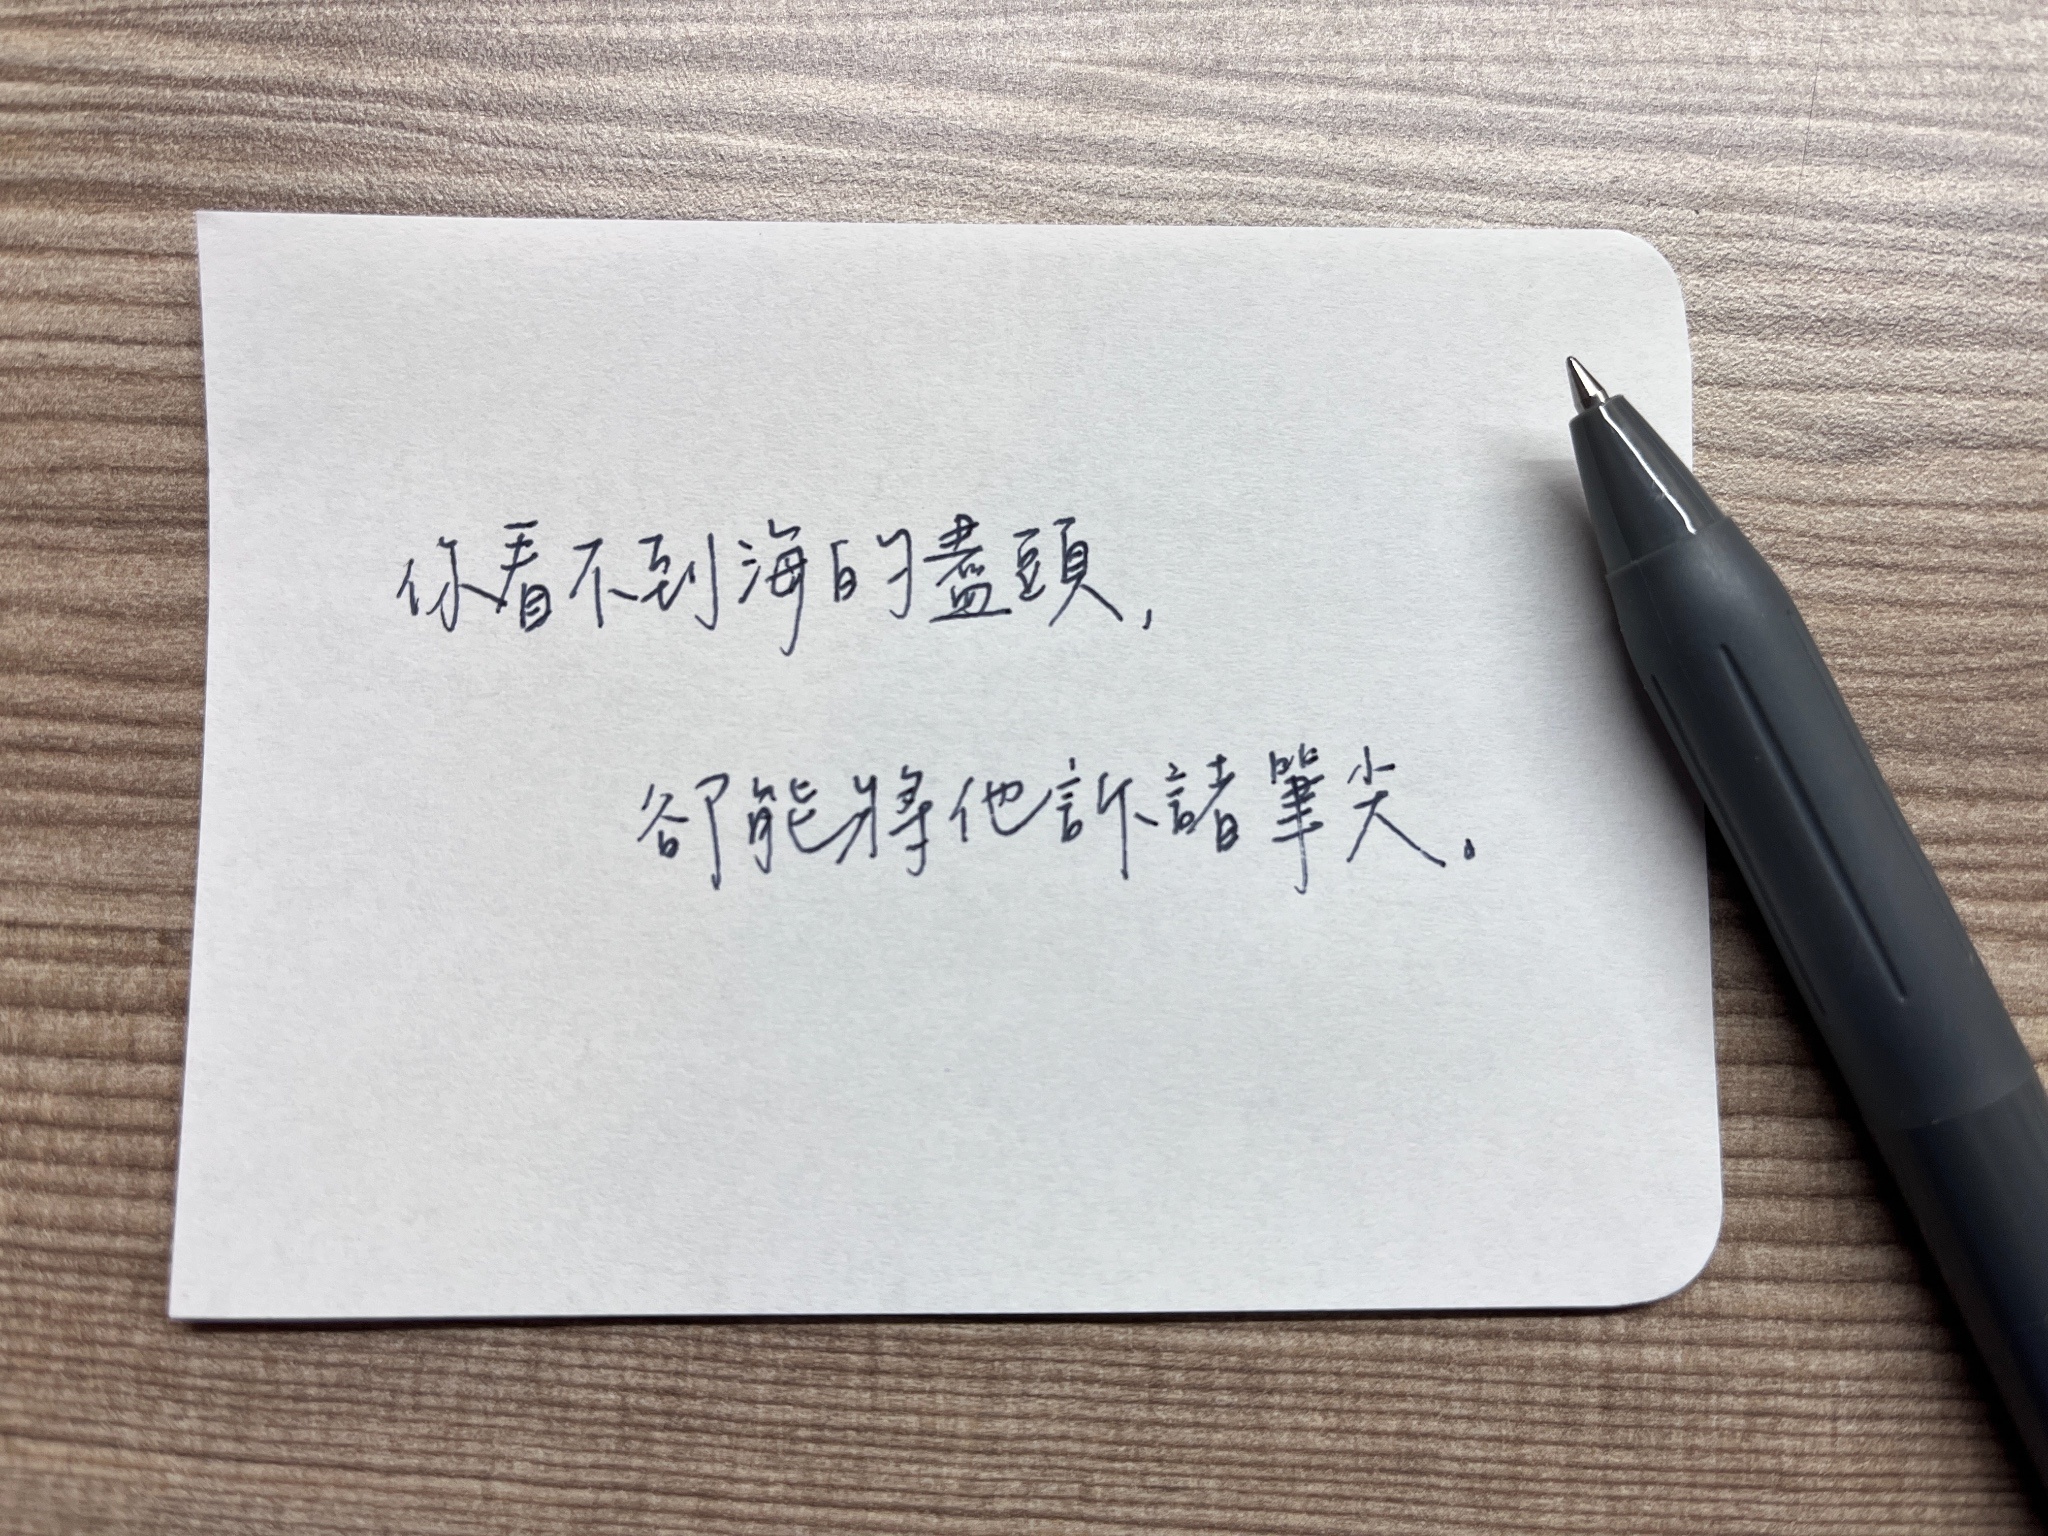 你看不到海的盡頭,
卻能將他訴諸筆尖.